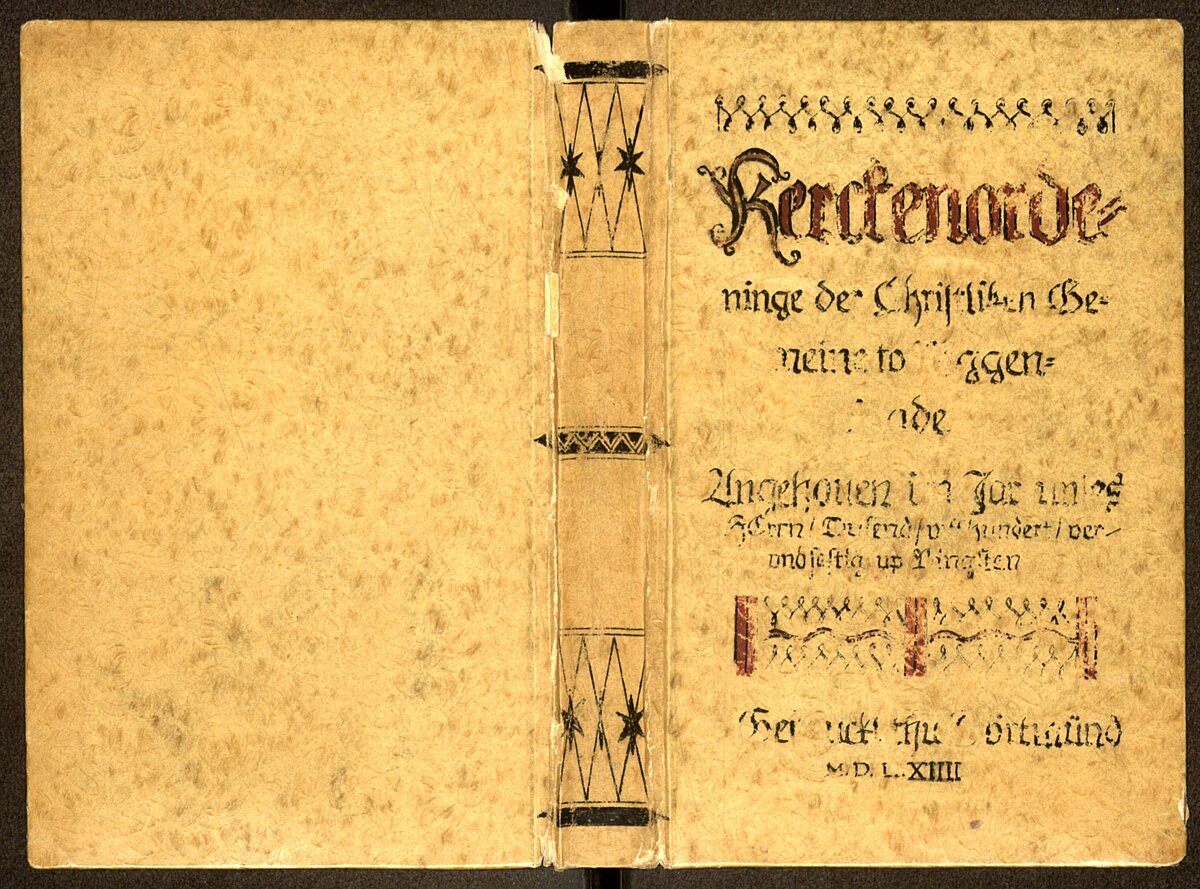 Kerckenorde-
ninge der Christliken Ge-
meine to
Angehouen im Jar unses
HErrn / Dusend / viffhundert / ver-
undsestig up Pingsten
Gedruckt thu Dortmünd
M. D. L. XIIII